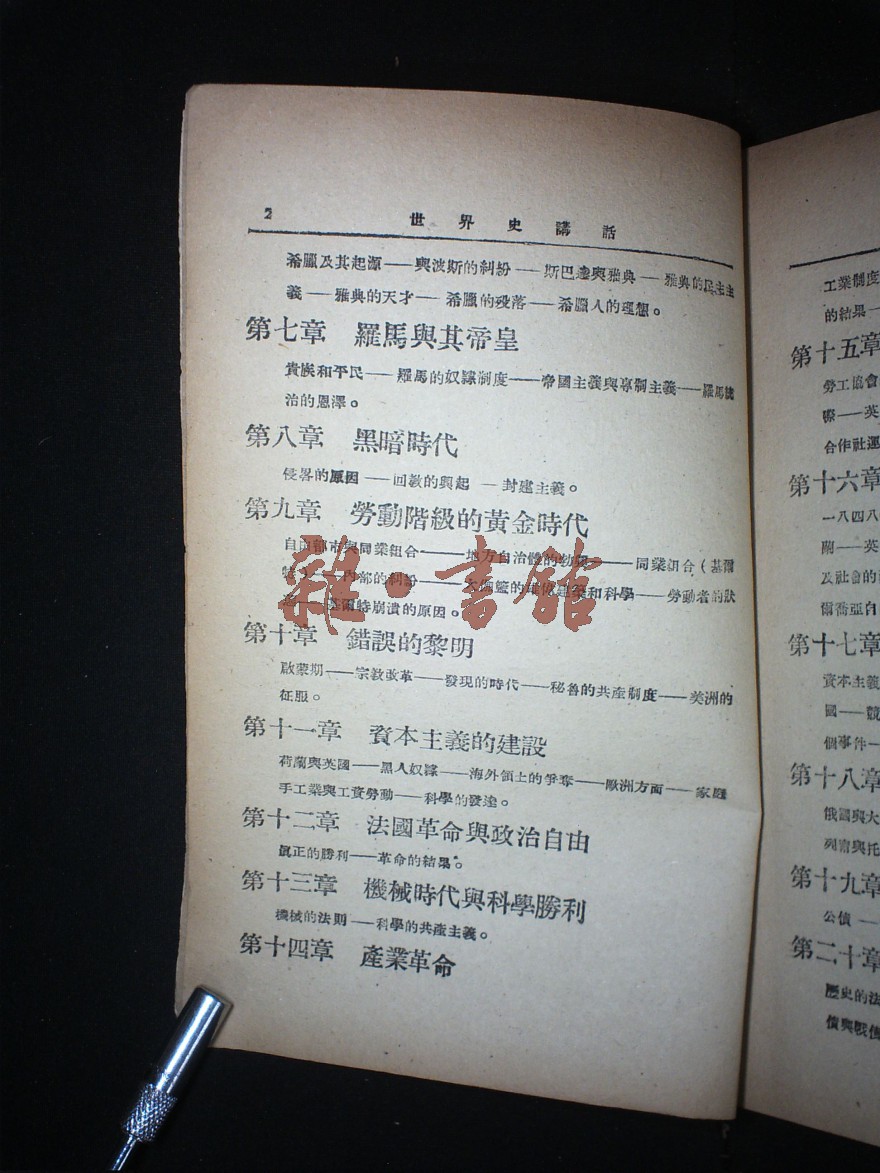 2 世界史講話
希臘及其起源——與波斯的糾紛——斯巴達與雅典——雅典的民主主
義——雅典的天才——希臘的歿落——希臘人的理想。
第七章 羅馬與其帝皇
貴族和平民——羅馬的奴隸制度——帝國主義與專制主義——羅馬統
治的恩澤。
第八章 黑暗時代
侵畧的原因——回教的興起——封建主義。
第九章 勞動階級的黃金時代
自由都市與同業組合——地方自治體的勃興——同業組合(基爾
內部的糾紛——建築和科學——勞動者的狀
基爾特崩潰的原因。
第十章 錯誤的黎明
啟蒙期——宗教改革——發現的時代——秘魯的共產制度——美洲的
征服。
第十一章 資本主義的建設
荷蘭與英國——黑人奴隸——海外領土的爭奪——歐洲方面——家庭
手工業與工資勞動——科學的發達。
第十二章 法國革命與政治自由
眞正的勝利——革命的結果。
第十三章 機械時代與科學勝利
機械的法則——科學的共產主義。
第十四章 產業革命
雜·書館
工業制度
的結果—
第十五章
勞工協會
際——英
合作社運
第十六章
一八四八
蘭——英
及社會的
爾喬亞自
第十七章
資本主義
國——競
個事件—
第十八章
俄國與大
列甯與托
第十九章
公債——
第二十章
歷史的法
債與戰債